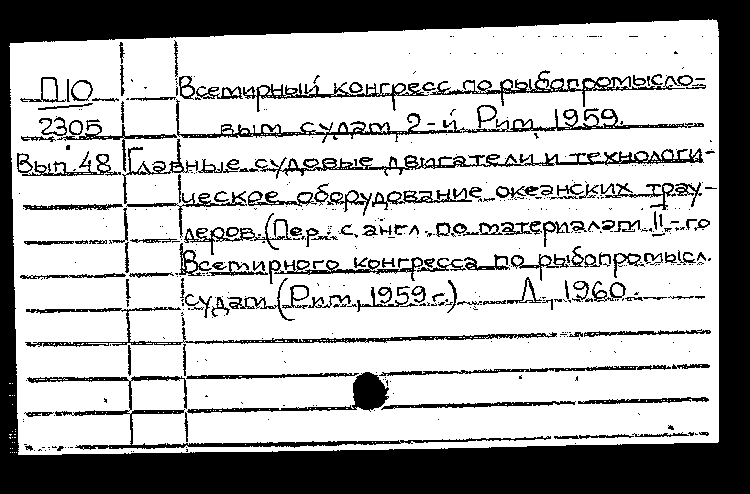 П10 Всемирный конгресс по рыбопромысло=
2305 вым судам, 2-й Рим, 1959.
Вып. 48 Главные судовые двигатели и технологи-
ческое оборудование океанских трау-
леров. (Пер. с англ. по материалам II-го
Всемирного конгресса по рыбопромысл.
судам (Рим, 1959 г.) Л, 1960.